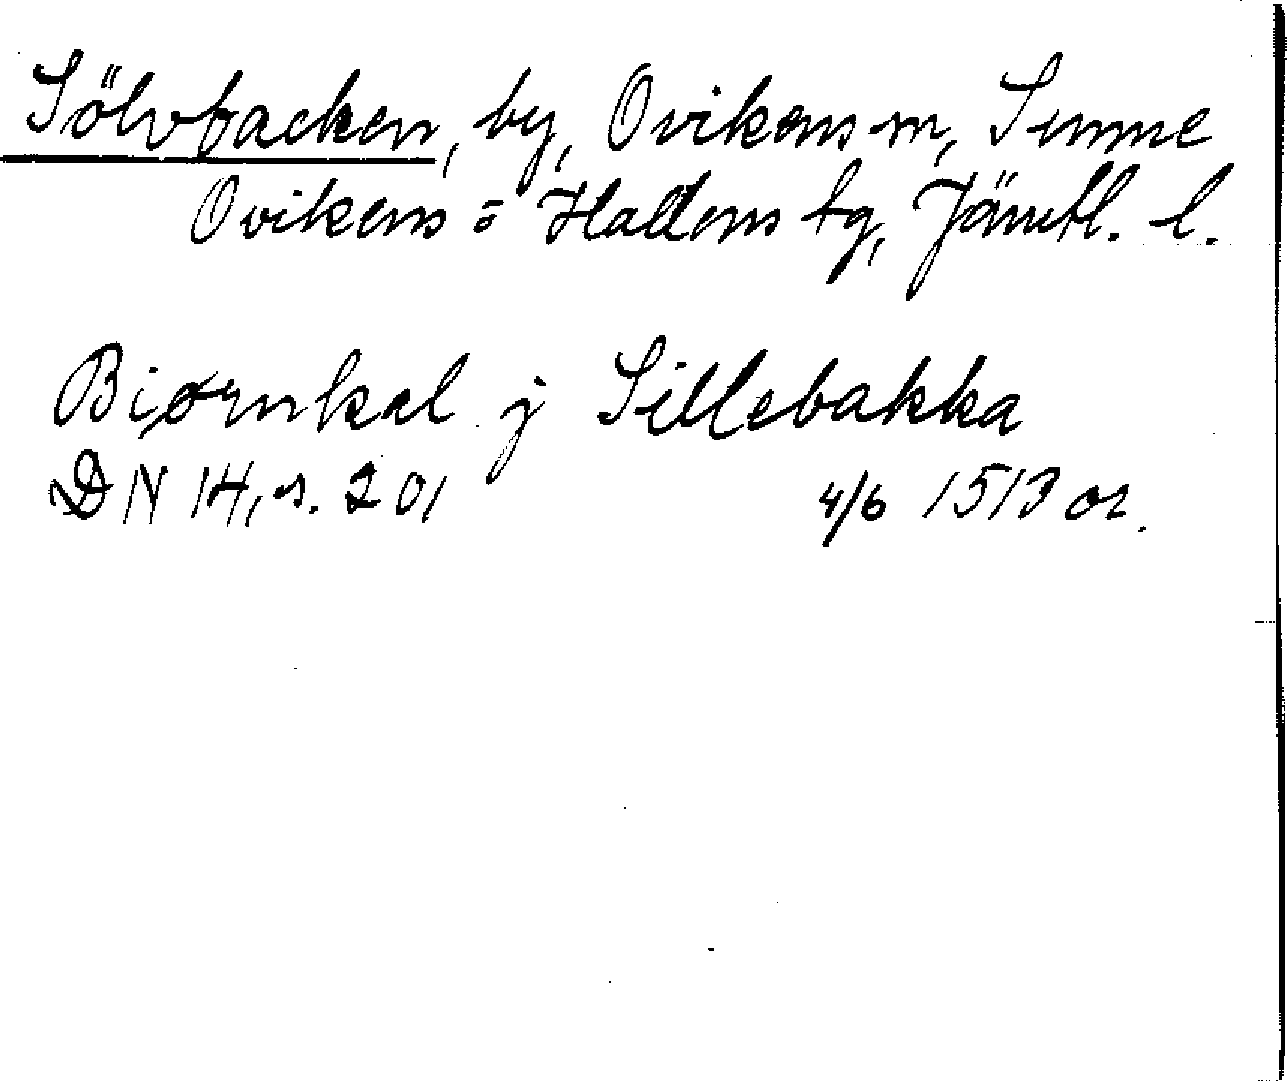 Sölvbacken, by, Ovikens sn, Sunne
Ovikens o Hallens tg, Jämtl. l.
Biørnkal j Sillebakka
DN 14, s. 201 4/6 1513 or.